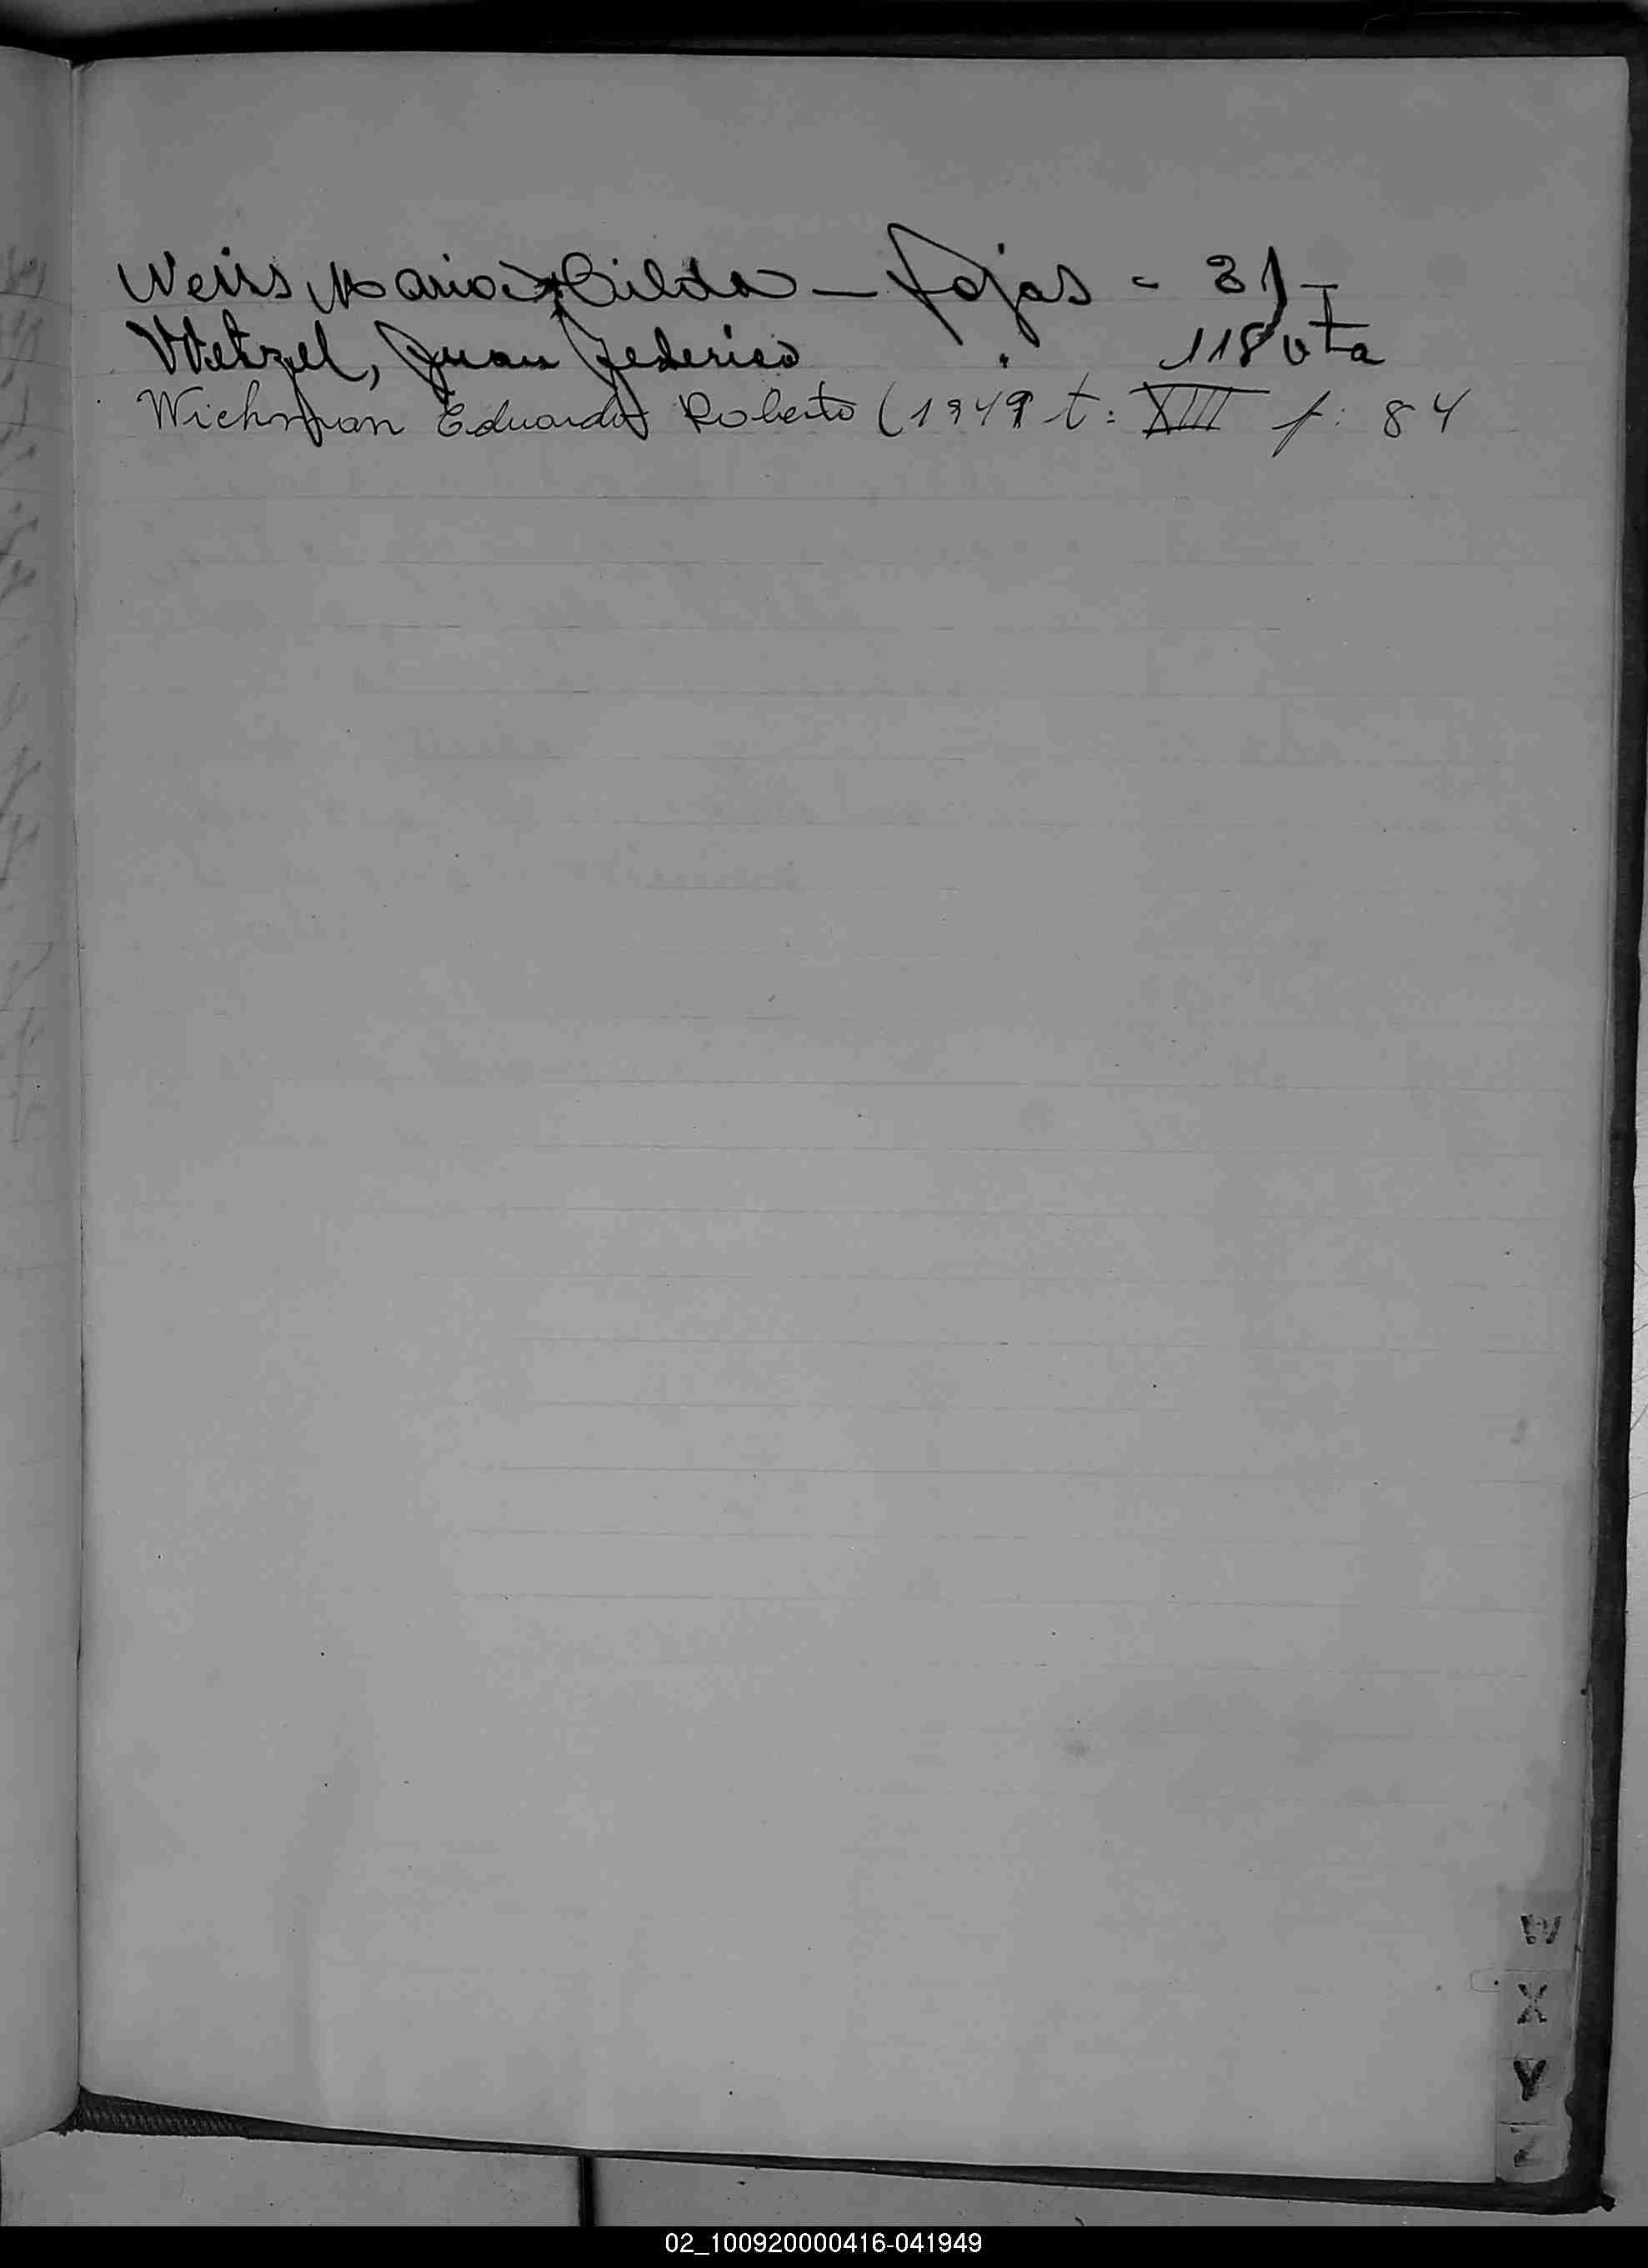 Weiss Maria Hilda — fojas - 31 - I
Wetzel, Juan Federico " 118 vta
Wichman Eduardo Roberto (1949 t: XIII f: 84
W
X
Y
Z
02_100920000416-041949